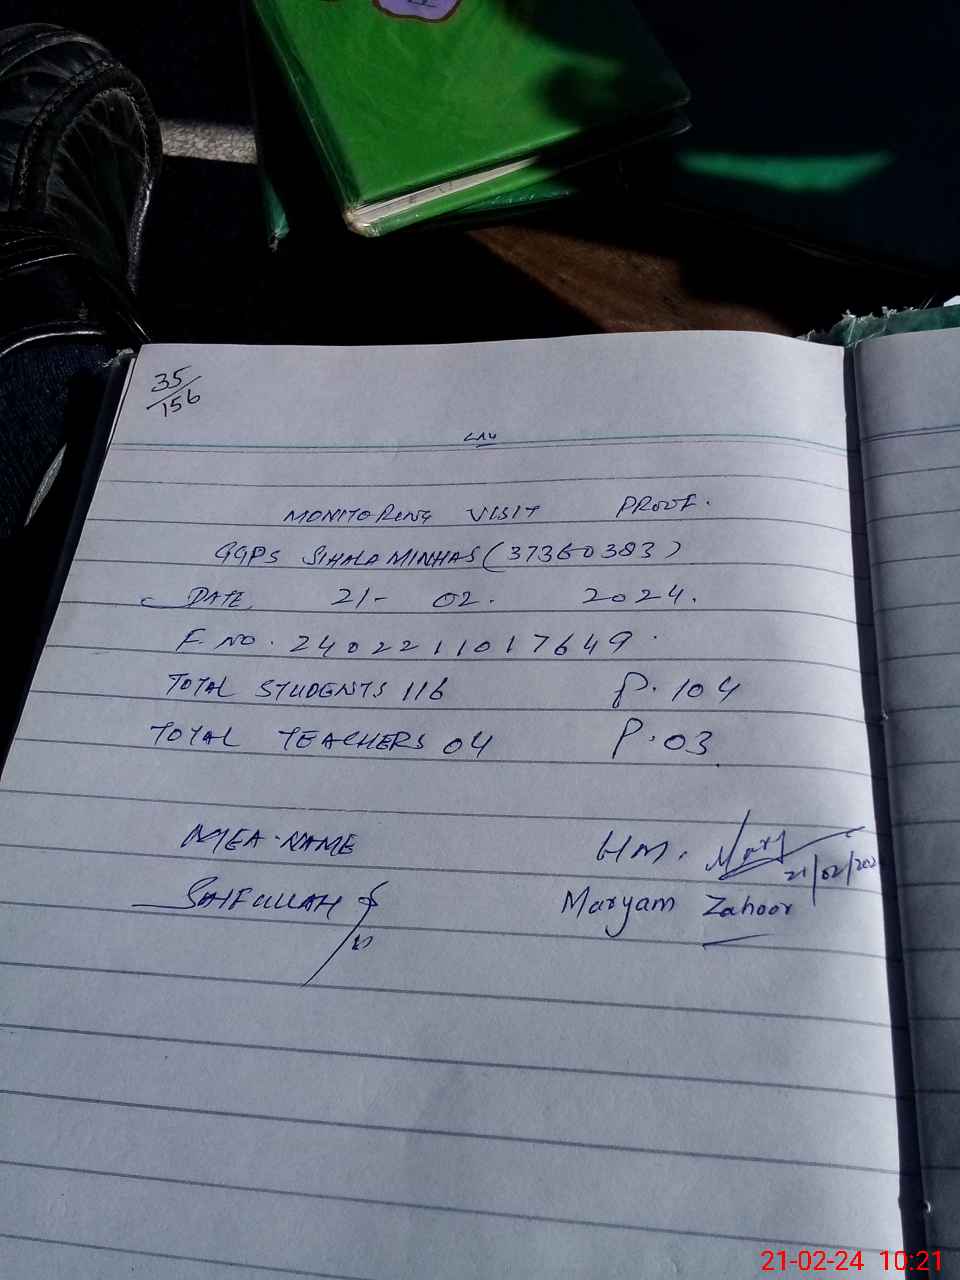 35/156
MONITORING VISIT PROOF.
GGPS SIHALA MINHAS (37360383)
DATE 21- 02. 2024.
F. NO. 2402211017649
TOTAL STUDENTS 116 P. 104
TOTAL TEACHERS 04 P. 03
MEA-NAME HM.
21/02/202
SAIFULLAH Maryam Zahoor
21-02-24 10:21